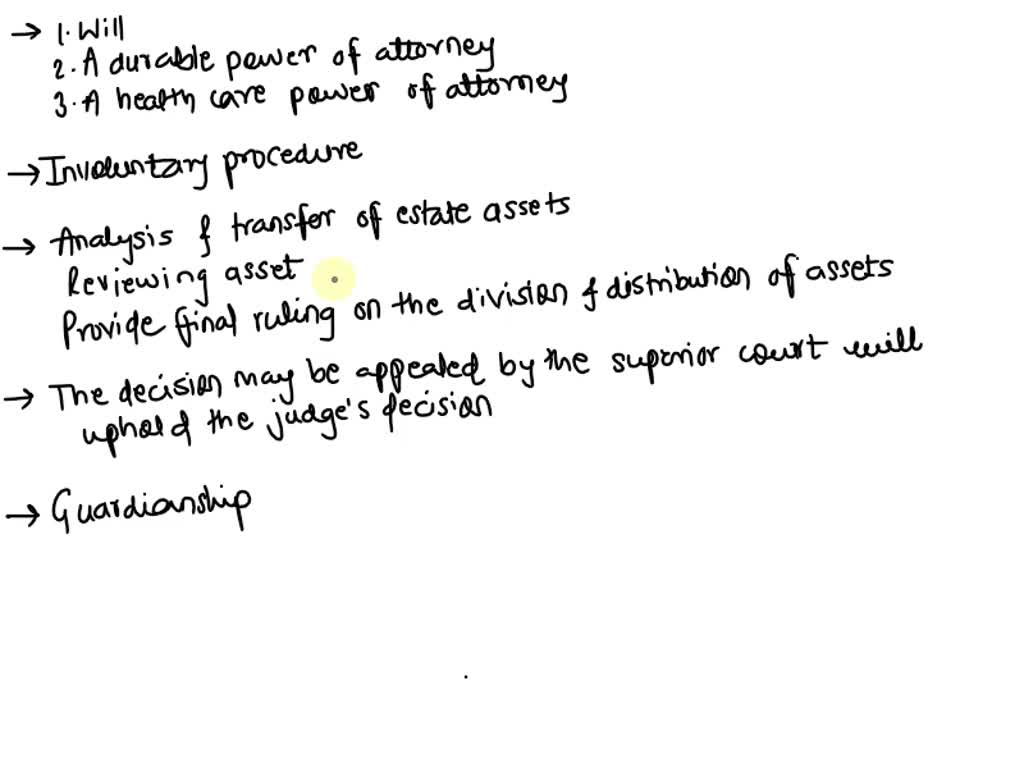 → 1. Will
2. A durable power of attorney
3. A health care power of attorney
→ Involuntary procedure
→ Analysis & transfer of estate assets
Reviewing asset
Provide final ruling on the division & distribution of assets
→ The decision may be appealed by the superior court will
uphold the judge's decision
→ Guardianship